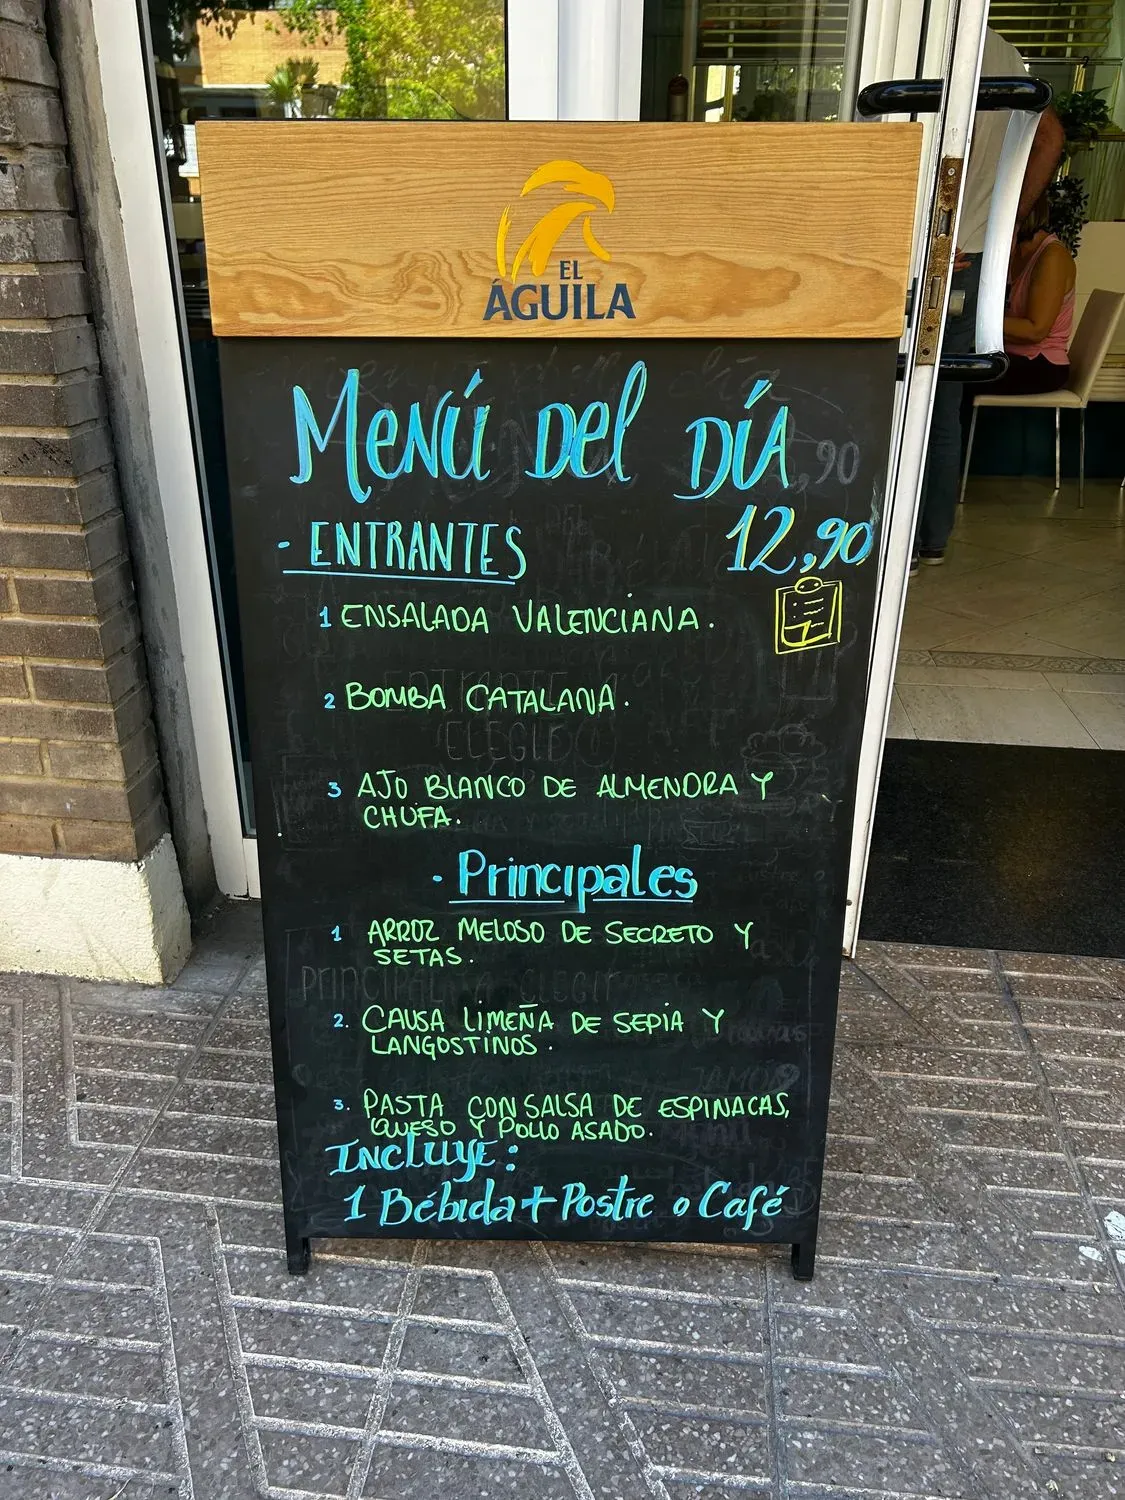 EL
ÁGUILA
Menú Del DÍA
- ENTRANTES
12,90
1 ENSALADA VALENCIANA.
2 BOMBA CATALANA.
3 AJO BLANCO DE ALMENDRA Y
CHUFA.
- Principales
1 ARROZ MELOSO DE SECRETO Y
SETAS.
2. CAUSA LIMEÑA DE SEPIA Y
LANGOSTINOS.
3. PASTA CON SALSA DE ESPINACAS,
QUESO Y POLLO ASADO.
INCLUYE:
1 Bébida + Postre o Café